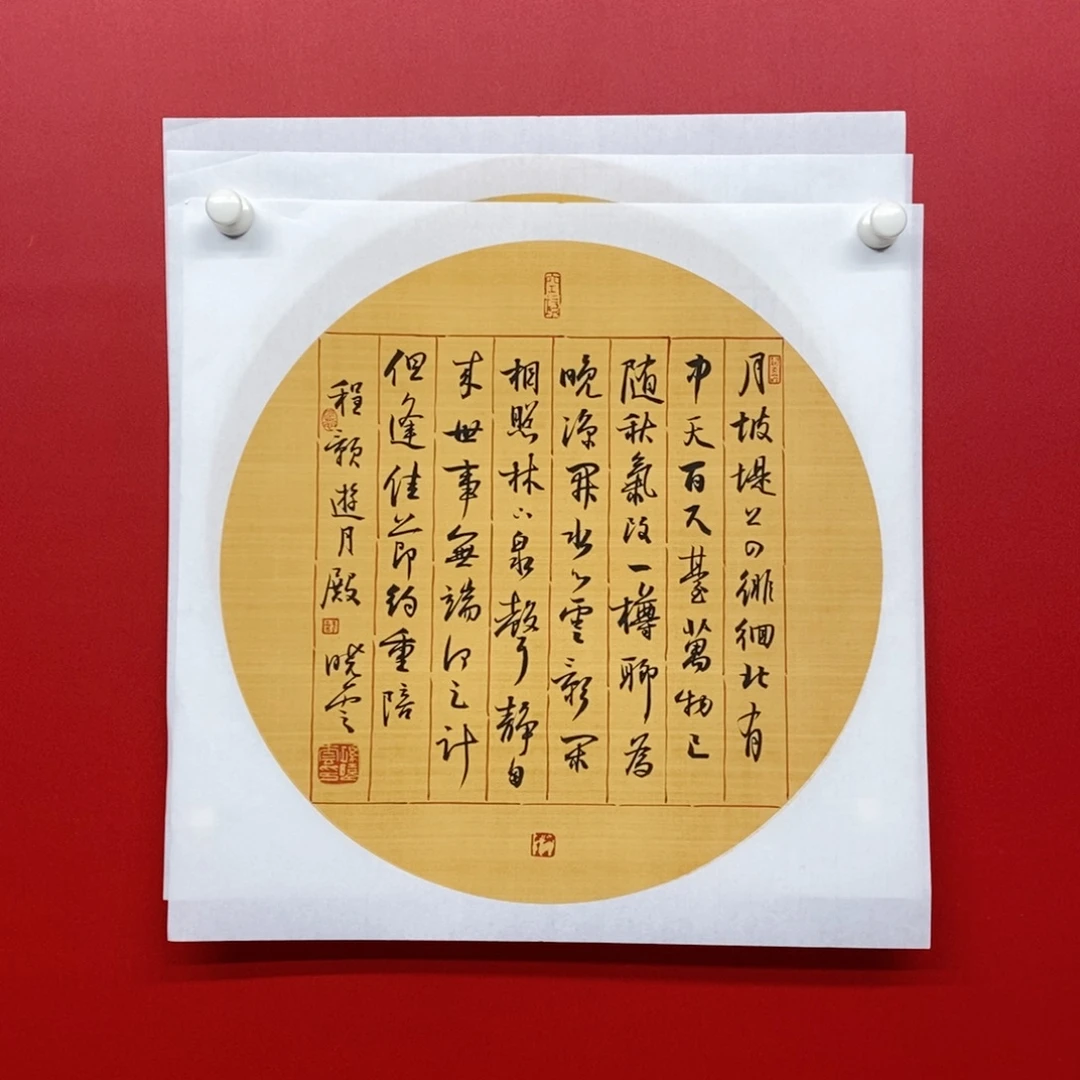 月坡堤上四徘徊北有
中天百尺臺萬物已
随秋氣改一樽聊為
晚涼開水心雲影閑
相照林下泉聲靜自
来世事無端何足計
但逢佳節約重陪
程顥遊月殿 晓雲